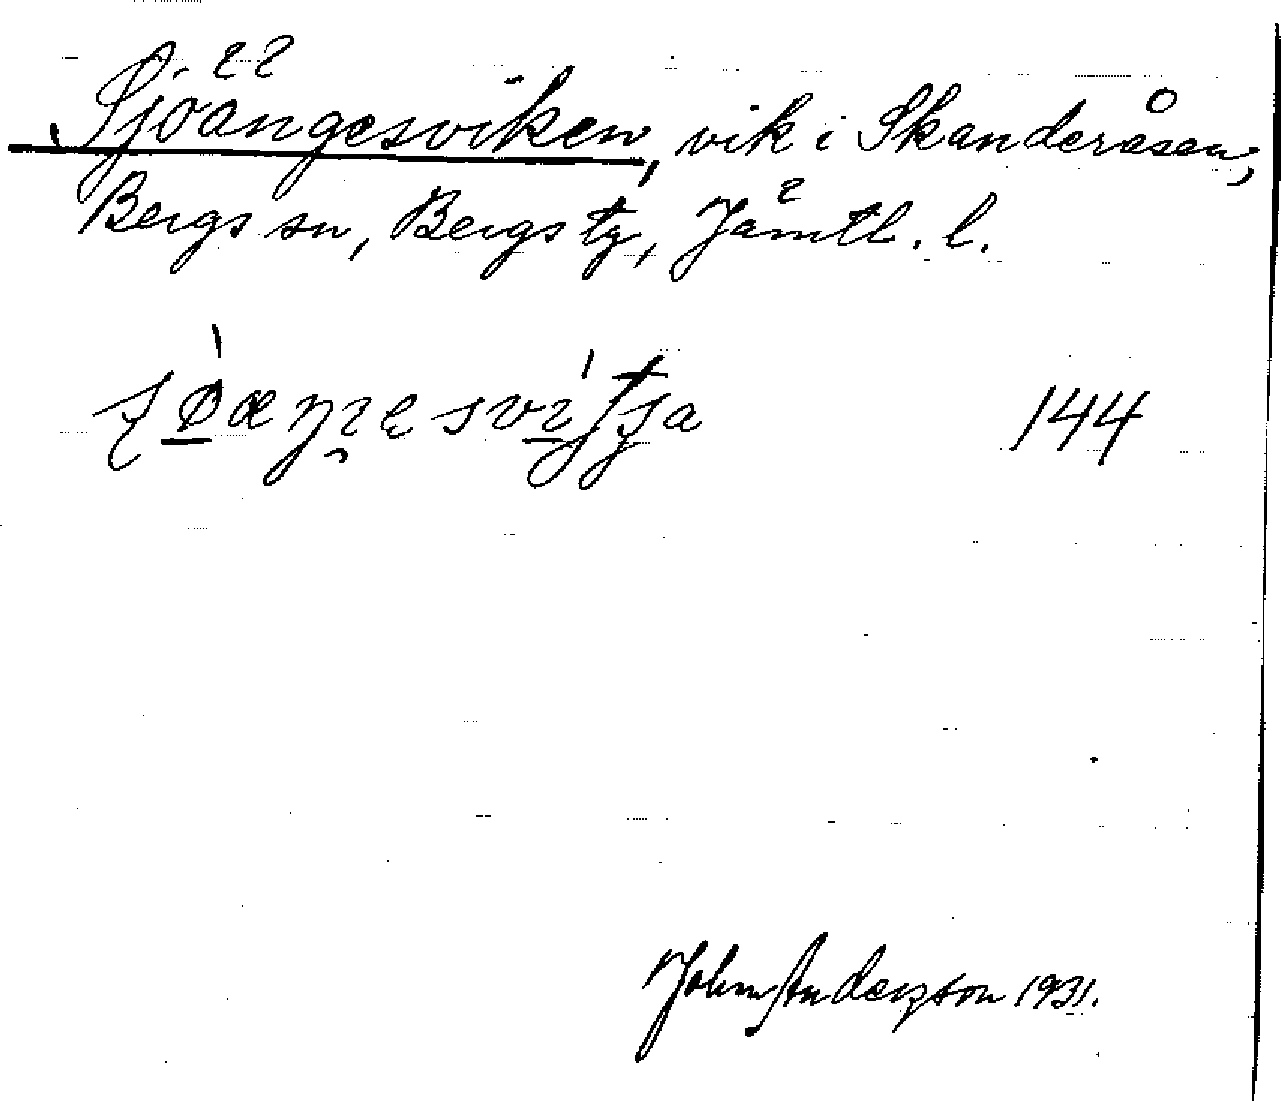 Sjöängesviken, vik i Skanderåsen,
Bergs sn, Bergs tg, Jämtl. l.
144
John Anderzson 1931.